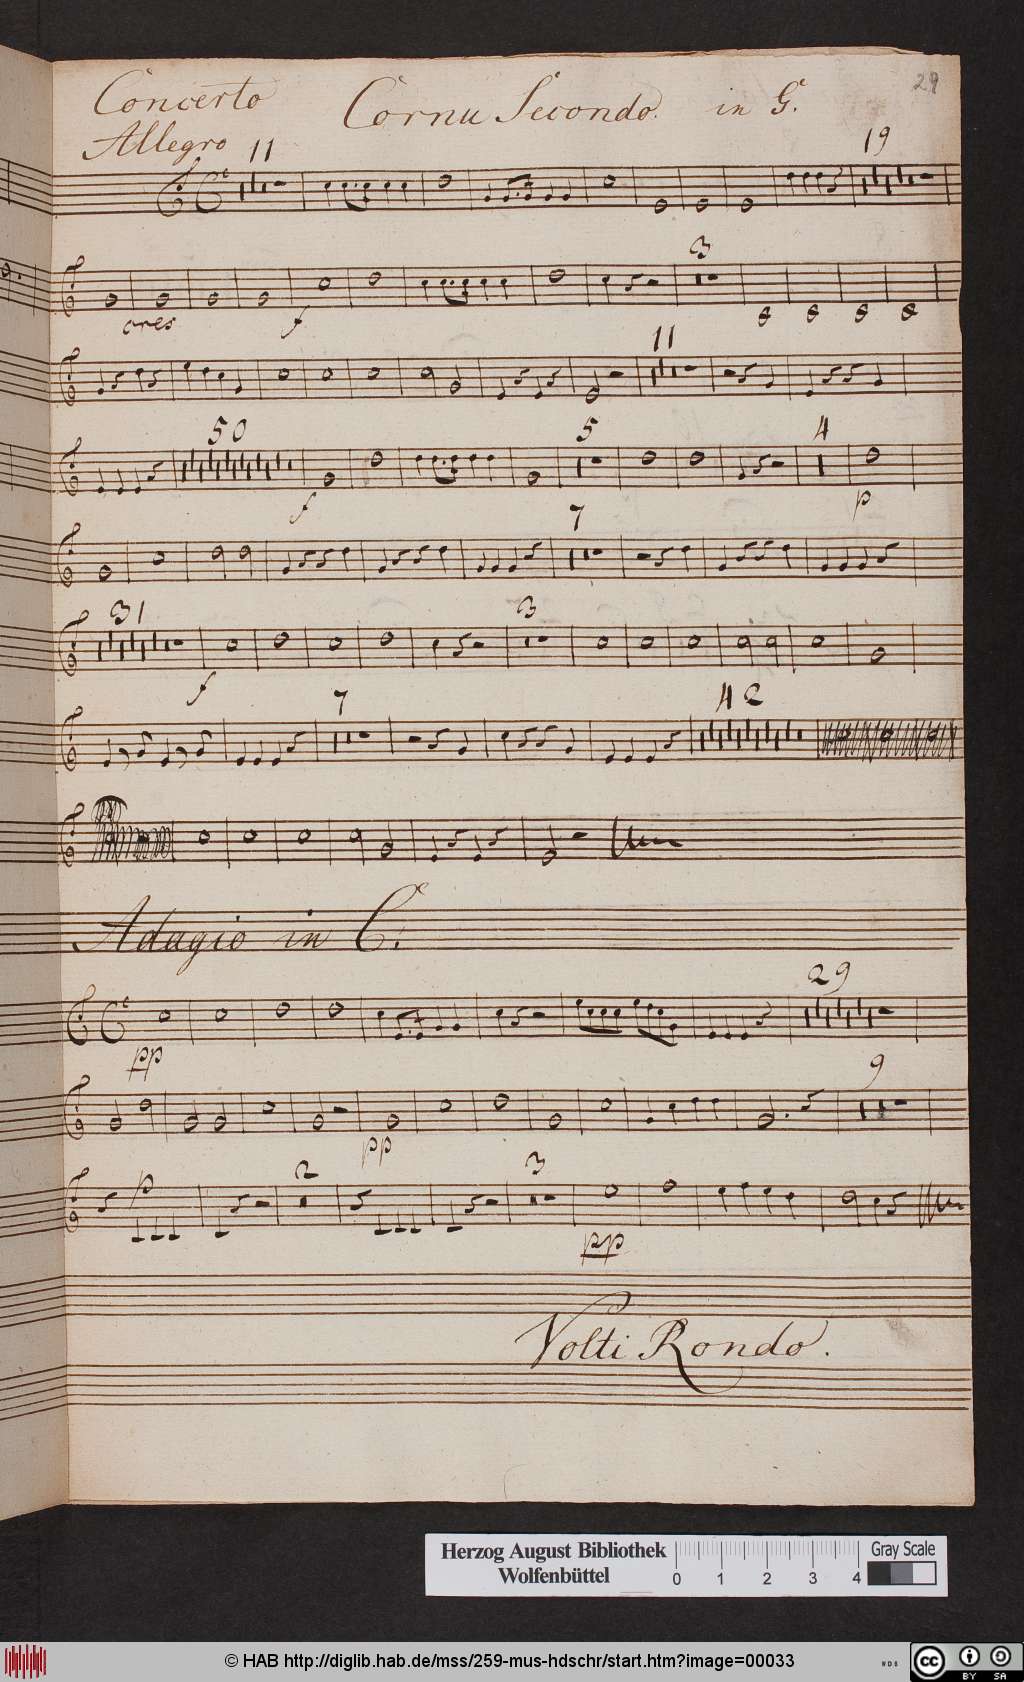 29
Concerto Cornu Secondo. in G.
Allegro 11 19
cres f 3
11
50 f 5 4 p
7
31 f 3
7 42
Adagio in C.
pp 29
pp 9
p 2 3 pp
Volti Rondo.
Herzog August Bibliothek
Wolfenbüttel
0 1 2 3 4
Gray Scale
© HAB http://diglib.hab.de/mss/259-mus-hdschr/start.htm?image=00033
WDB
cc BY SA